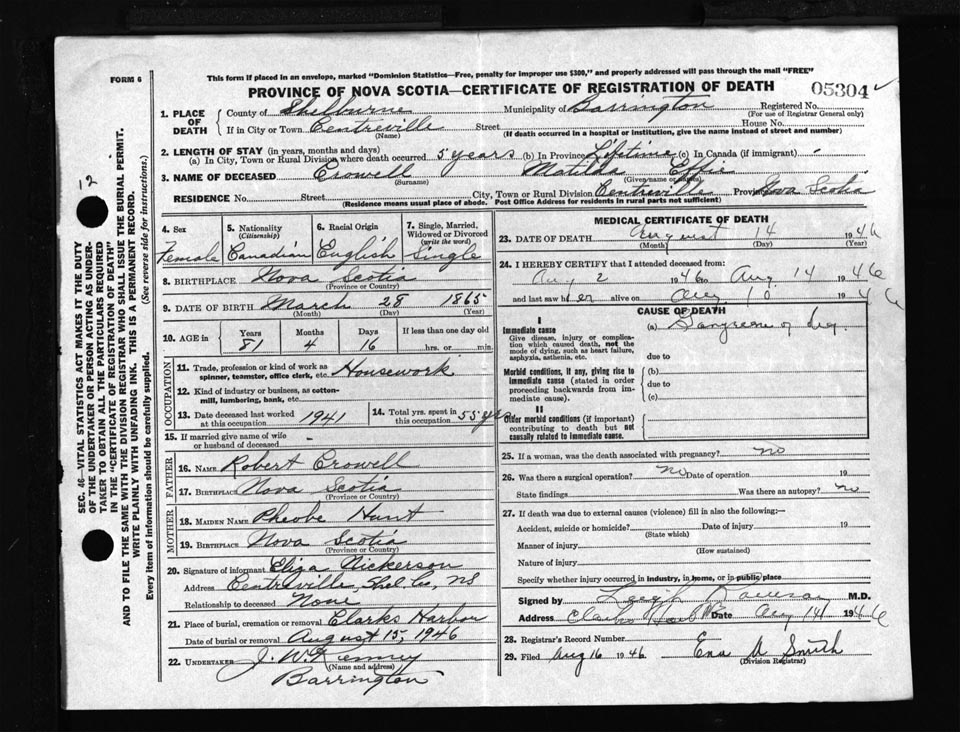 FORM 6
This form if placed in an envelope, marked "Dominion Statistics—Free, penalty for improper use $300," and properly addressed will pass through the mail "FREE"
PROVINCE OF NOVA SCOTIA—CERTIFICATE OF REGISTRATION OF DEATH
05304
1. PLACE OF DEATH
County of Shelburne Municipality of Barrington Registered No.
(For use of Registrar General only)
If in City or Town Centreville Street House No.
(Name) (If death occurred in a hospital or institution, give the name instead of street and number)
2. LENGTH OF STAY (in years, months and days)
(a) In City, Town or Rural Division where death occurred 5 years (b) In Province Lifetime (c) In Canada (if immigrant) -
3. NAME OF DECEASED Crowell Matilda Effie
(Surname) (Given name or names)
RESIDENCE No. Street City, Town or Rural Division Centreville Province Nova Scotia
(Residence means usual place of abode. Post Office Address for residents in rural parts not sufficient)
4. Sex
Female
5. Nationality
(Citizenship)
Canadian
6. Racial Origin
English
7. Single, Married, Widowed or Divorced
(write the word)
Single
8. BIRTHPLACE Nova Scotia
(Province or Country)
9. DATE OF BIRTH March 28 1865
(Month) (Day) (Year)
10. AGE in
Years Months Days If less than one day old
81 4 16 hrs. or min.
OCCUPATION
11. Trade, profession or kind of work as spinner, teamster, office clerk, etc. Housework
12. Kind of industry or business, as cotton-mill, lumbering, bank, etc.
13. Date deceased last worked at this occupation 1941
14. Total yrs. spent in this occupation 55 yrs
15. If married give name of wife or husband of deceased -
FATHER
16. NAME Robert Crowell
17. BIRTHPLACE Nova Scotia
(Province or Country)
MOTHER
18. MAIDEN NAME Pheobe Hunt
19. BIRTHPLACE Nova Scotia
(Province or Country)
20. Signature of informant Eliza Nickerson
Address Centreville, Shel. Co., NS
Relationship to deceased None
21. Place of burial, cremation or removal Clarks Harbor
Date of burial or removal August 15, 1946
22. UNDERTAKER J. W. Kenney
(Name and address)
Barrington
MEDICAL CERTIFICATE OF DEATH
23. DATE OF DEATH August 14 1946
(Month) (Day) (Year)
24. I HEREBY CERTIFY that I attended deceased from:
Aug 2 1946 to Aug. 14 1946
and last saw her alive on Aug 10 1946
CAUSE OF DEATH
I
Immediate cause
Give disease, injury or complication which caused death, not the mode of dying, such as heart failure, asphyxia, asthenia, etc.
(a) Gangrene of leg.
due to
Morbid conditions, if any, giving rise to immediate cause (stated in order proceeding backwards from immediate cause).
(b)
due to
(c)
II
Other morbid conditions (if important) contributing to death but not causally related to immediate cause.
25. If a woman, was the death associated with pregnancy? no
26. Was there a surgical operation? no Date of operation 19
State findings Was there an autopsy? no
27. If death was due to external causes (violence) fill in also the following:—
Accident, suicide or homicide? Date of injury 19
(State which)
Manner of injury
(How sustained)
Nature of injury
Specify whether injury occurred in industry, in home, or in public place
Signed by Leigh M.D.
Address Date Aug 14 1946
28. Registrar's Record Number
29. Filed Aug 16 1946 Ena A Smith
(Division Registrar)
12
SEC. 46—VITAL STATISTICS ACT MAKES IT THE DUTY
OF THE UNDERTAKER OR PERSON ACTING AS UNDER-
TAKER TO OBTAIN ALL THE PARTICULARS REQUIRED
IN THE "CERTIFICATE OF REGISTRATION OF DEATH"
AND TO FILE THE SAME WITH THE DIVISION REGISTRAR WHO SHALL ISSUE THE BURIAL PERMIT.
WRITE PLAINLY WITH UNFADING INK. THIS IS A PERMANENT RECORD.
Every item of information should be carefully supplied. (See reverse side for instructions.)